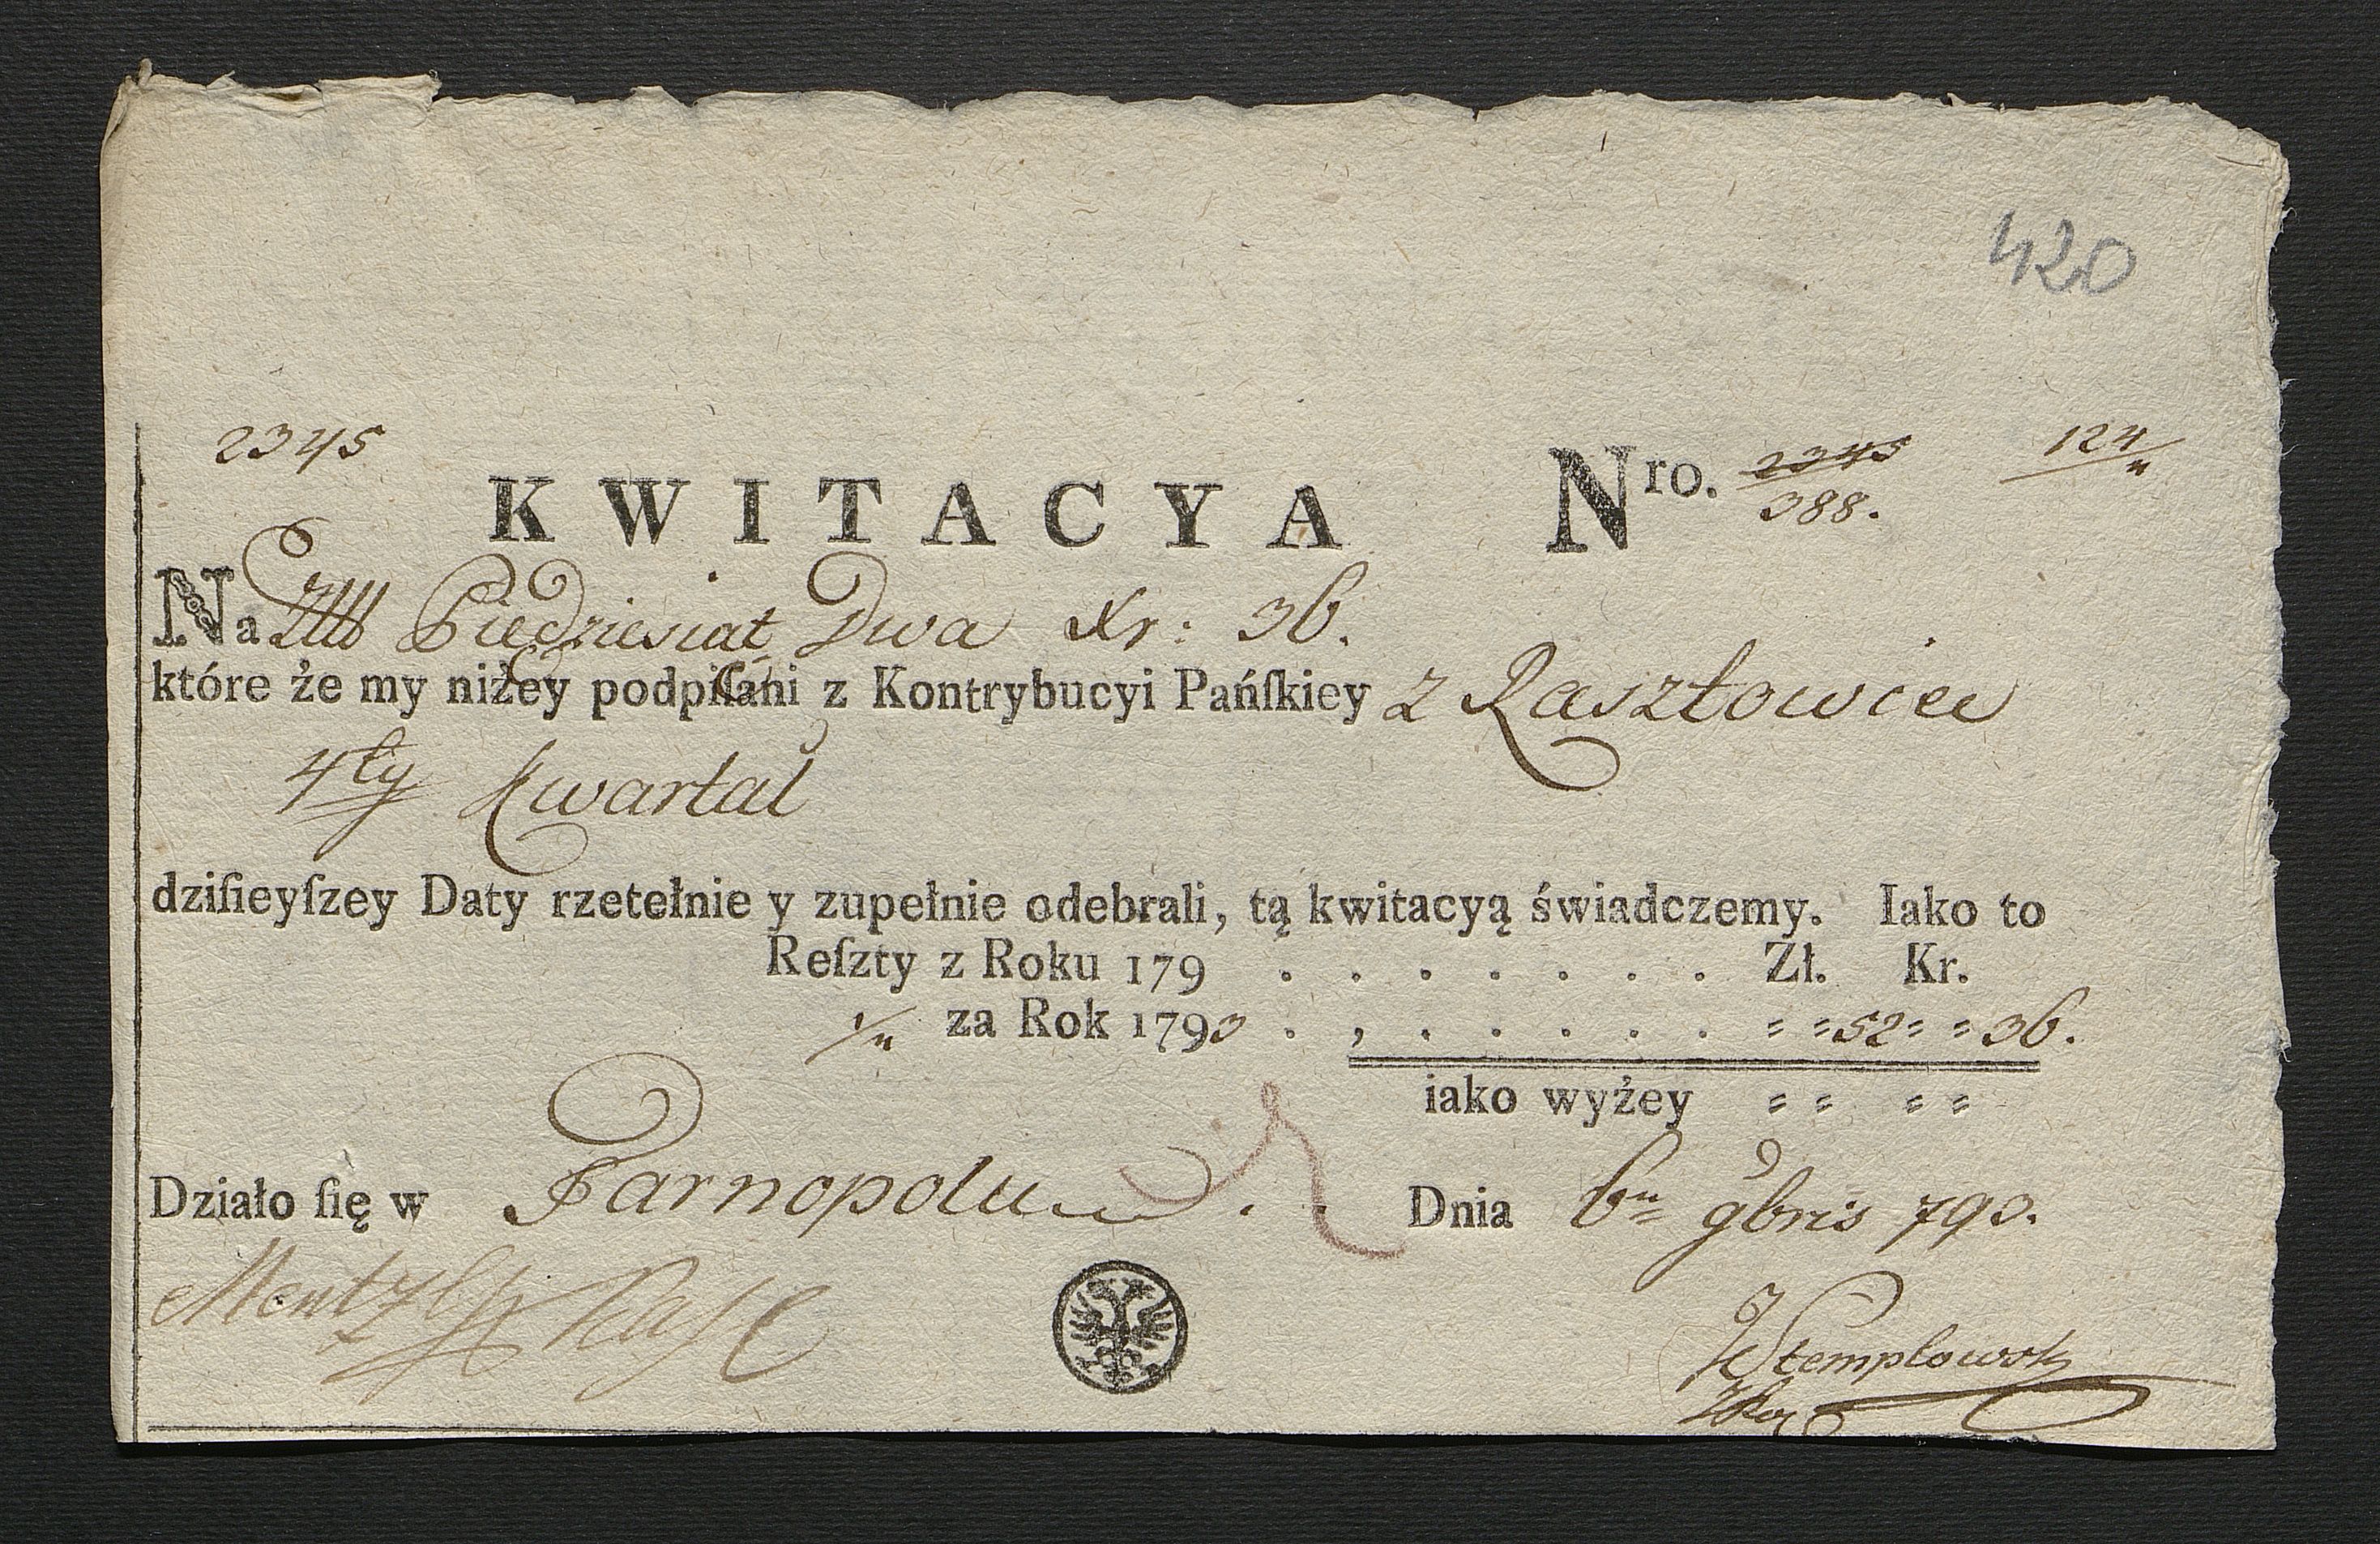 420
2345
KWITACYA Nro. 2345 124
388.
Na Piędziesiąt Dwa Xr: 36.
które że my niżey podpiſani z Kontrybucyi Pańſkiey z Rasztowiec
4ty Kwartał
dziſieyſzey Daty rzetełnie y zupełnie odebrali, tą kwitacyą świadczemy. Iako to
Reſzty z Roku 179 . . . . . . . Zł. Kr.
za Rok 1793 . , . . . . . 52 36.
iako wyżey
Działo ſię w Tarnopolu . Dnia 6 9bris 793.